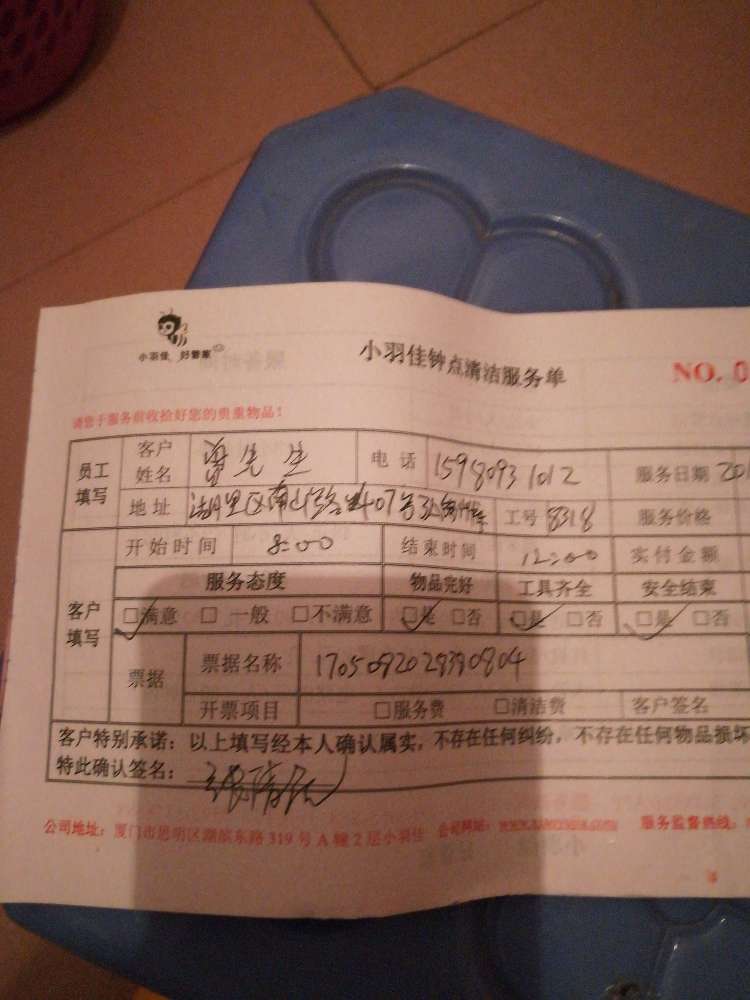 小羽佳 好管家
小羽佳钟点清洁服务单
NO. 0
请您于服务前收捡好您的贵重物品！
员工填写 客户姓名 曾先生 电话 15980931012 服务日期 20
地址 湖里区南山路 407号 工号 8318 服务价格
客户填写 开始时间 8:00 结束时间 12:00 实付金额
服务态度 物品完好 工具齐全 安全结束
☑满意 □一般 □不满意 ☑是 □否 ☑是 □否 ☑是 □否
票据 票据名称
开票项目 □服务费 □清洁费 客户签名
客户特别承诺：以上填写经本人确认属实，不存在任何纠纷，不存在任何物品损坏
特此确认签名：
公司地址：厦门市思明区湖滨东路 319 号 A 幢 2 层小羽佳 公司网站： 服务监督热线：